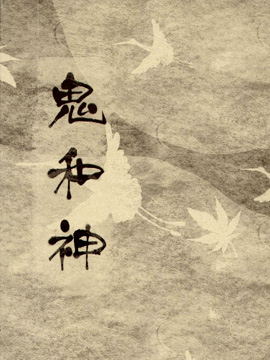 鬼和神